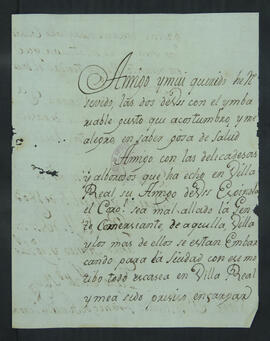 Amigo y mui querido he Re
sevido, las dos de Vs con el ymba
riable gusto que acostumbro, y me
alegro, en saber gosa de salud
Amigo con las delicadesas
y alborotos que ha echo en Villa
Real su Amigo de Vs Escipiola
el Caro! sea mal allado la Gen
te Comersiante, de aqulla Villa
y los mas de ellos se estan Embar
cando para la Siudad con ese mo
tibo todo escasea en Villa Real
y mea sido presiso encargar